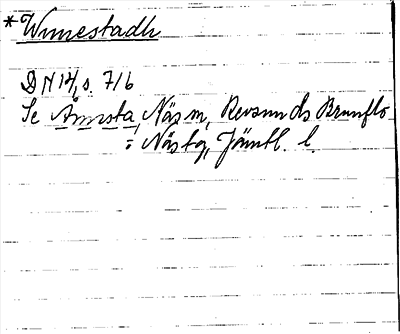 *Wimestadh
DN 14, s. 716
Se Åmsta, Näs sn, Revsunds Brunflo
o Näs tg, Jämtl. l.